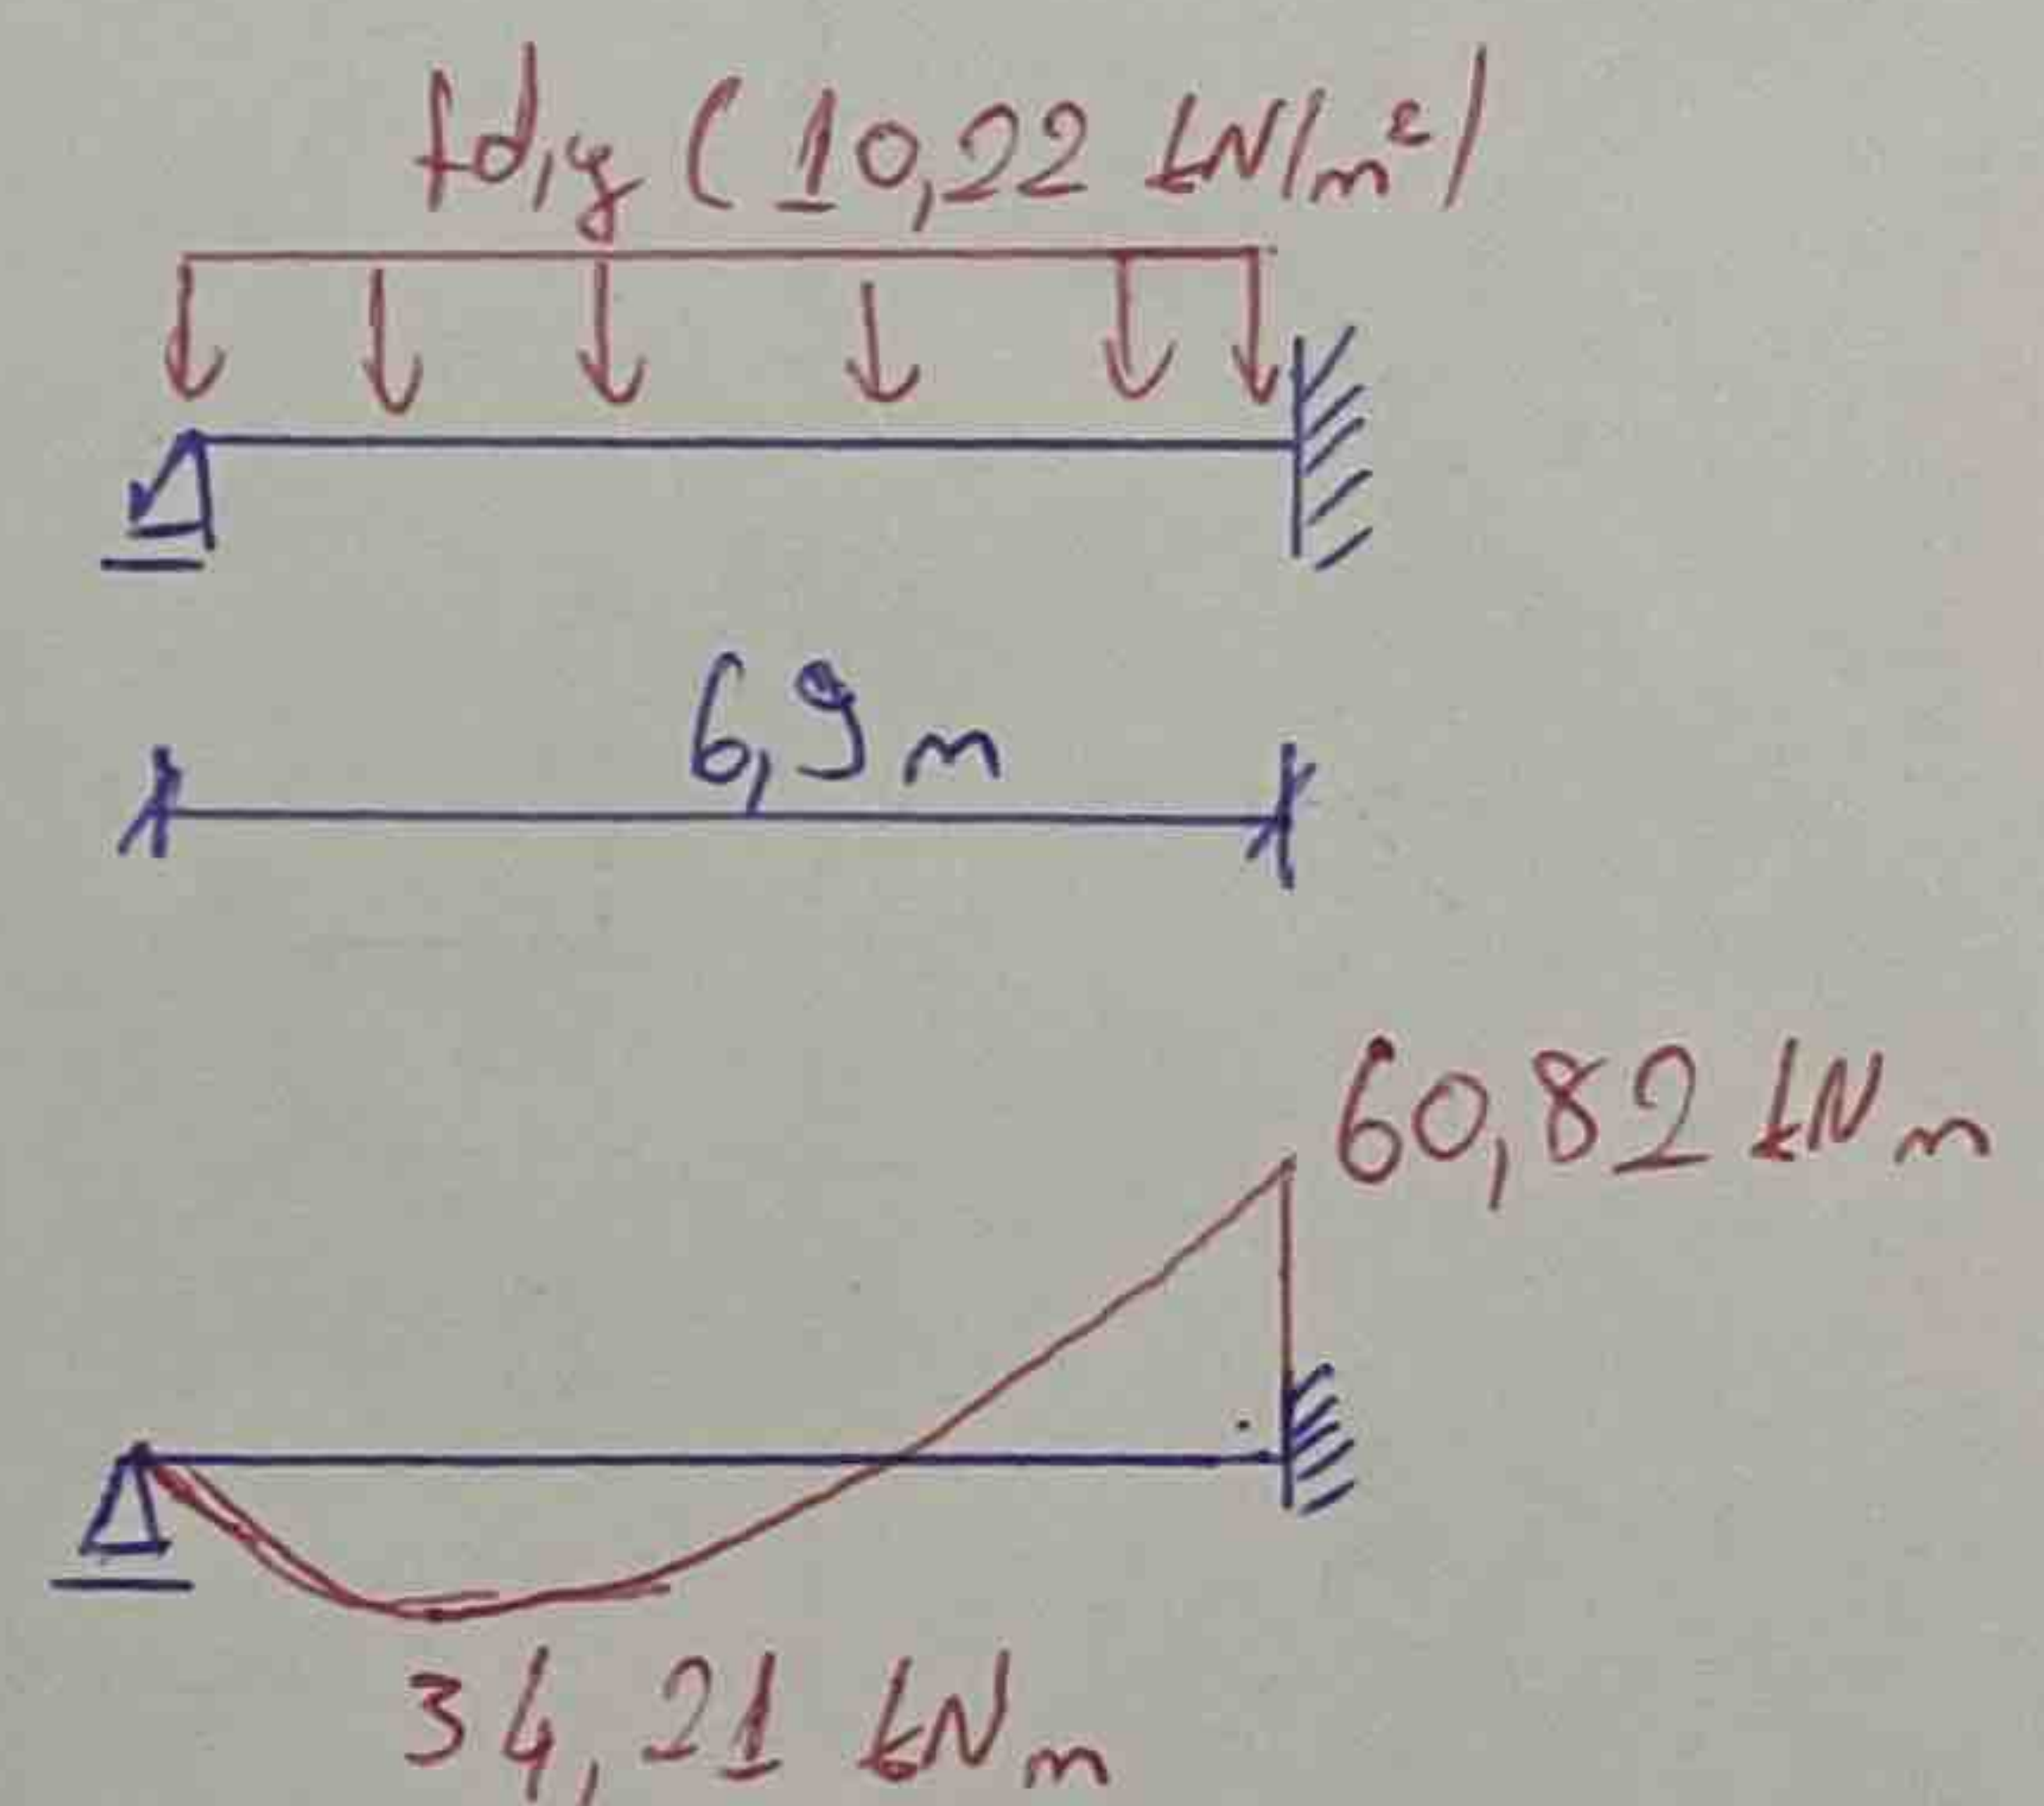 fd,y (10,22 kN/m²)
6,9 m
60,82 kNm
34,21 kNm